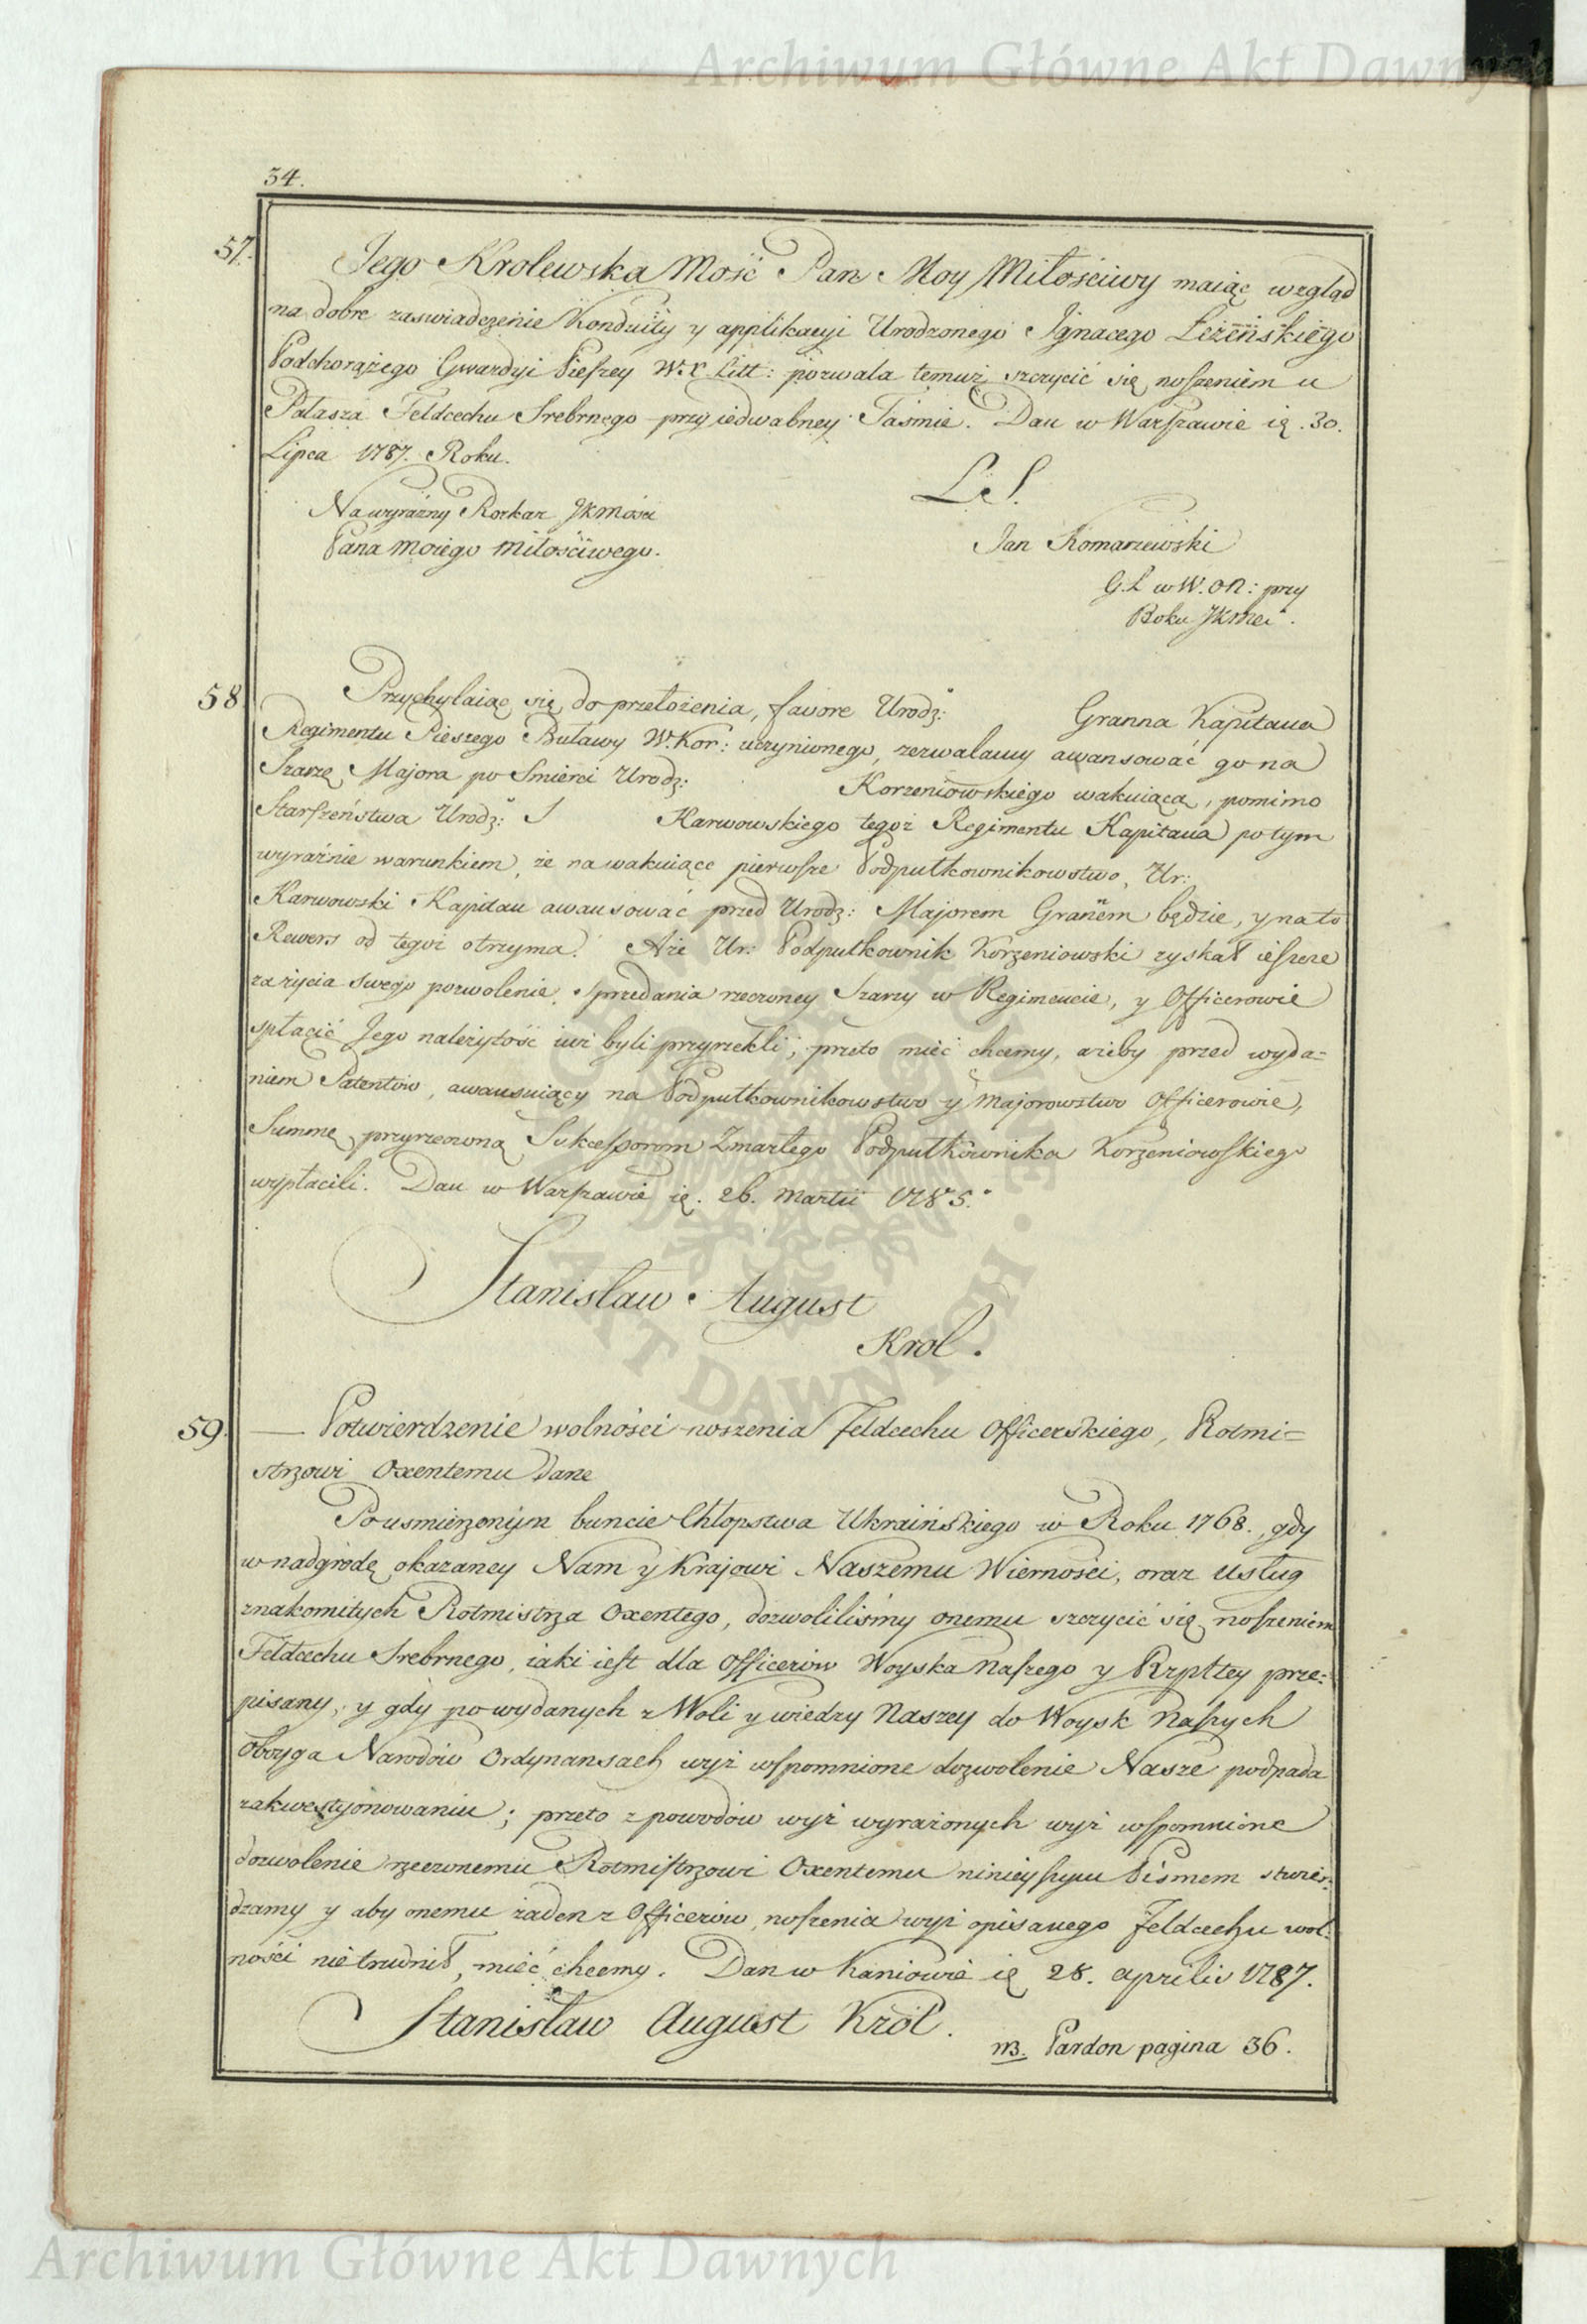 Archiwum Główne Akt Dawnych
34.
57.
Jego Krolewska Mość Pan Moy Miłościwy maiąc wzgląd
na dobre zaswiadczenie Konduity y applikacyi Urodzonego Ignacego Leżeńskiego
Podchorążego Gwardyi Pieszey W.X. Litt: pozwala temuż szczycić się noszeniem u
Pałasza Feldcechu Srebrnego przy iedwabney Taśmie. Dan w Warszawie ię. 30.
Lipca 1787. Roku.
L.S.
Na wyraźny Rozkaz JKMości
Pana moiego miłościwego.
Jan Komarzewski
G.L w W. O N: przy
Boku JKMci.
58
Przychylaiąc się do przełożenia, favore Urodz: Granna Kapitana
Regimentu Pieszego Buławy W. Kor: uczynionego, zezwalamy awansować go na
Szarżę Majora po Smierci Urodz: Korzeniowskiego wakuiącą, pomimo
Starszeństwa Urodz: J Karwowskiego tegoż Regimentu Kapitana po tym
wyraźnie warunkiem, że na wakuiące pierwsze Podpułkownikowstwo, Ur:
Karwowski Kapitan awansować przed Urodz: Majorem Granem będzie, y na to
Rewers od tegoż otrzyma. Aże Ur: Podpułkownik Korzeniowski zyskał ieszcze
za życia swego pozwolenie sprzedania rzeczoney Szarży w Regimencie, y Officerowie
spłacić Jego należytość iuż byli przyrzekli, przeto mieć chcemy, ażeby przed wyda=
niem Patentów, awansuiący na Podpułkownikowstwo y Majorowstwo Officerowie,
Summę przyrzeczoną Sukcessorom Zmarłego Podpułkownika Korzeniowskiego
wypłacili. Dan w Warszawie ię. 26. Martii 1785.
Stanisław August
Krol.
59.
Potwierdzenie wolności noszenia Feldcechu Officerskiego, Rotmi=
strzowi Oxentemu dane
Po usmierzonym buncie Chłopstwa Ukraińskiego w Roku 1768., gdy
w nadgrodę okazaney Nam y Krajowi Naszemu Wierności, oraz usług
znakomitych Rotmistrza Oxentego, dozwoliliśmy onemu szczycić się noszeniem
Feldcechu Srebrnego, iaki iest dla Officerów Woyska Naszego y Rzpltey prze=
pisany, y gdy po wydanych z Woli y wiedzy Naszey do Woysk Naszych
oboyga Narodów Ordynansach wyż wspomnione dozwolenie Nasze podpada
zakwestyonowaniu; przeto z powodów wyż wyrażonych wyż wspomnione
dozwolenie rzeczonemu Rotmistrzowi Oxentemu ninieyszym Pismem stwier=
dzamy y aby onemu żaden z Officerów, noszenia wyż opisanego Feldcechu wol=
ności nie trudnił, mieć chcemy. Dan w Kaniowie ię 28. Aprilis 1787.
Stanisław August Król.
NB. Pardon pagina 36.
Archiwum Główne Akt Dawnych